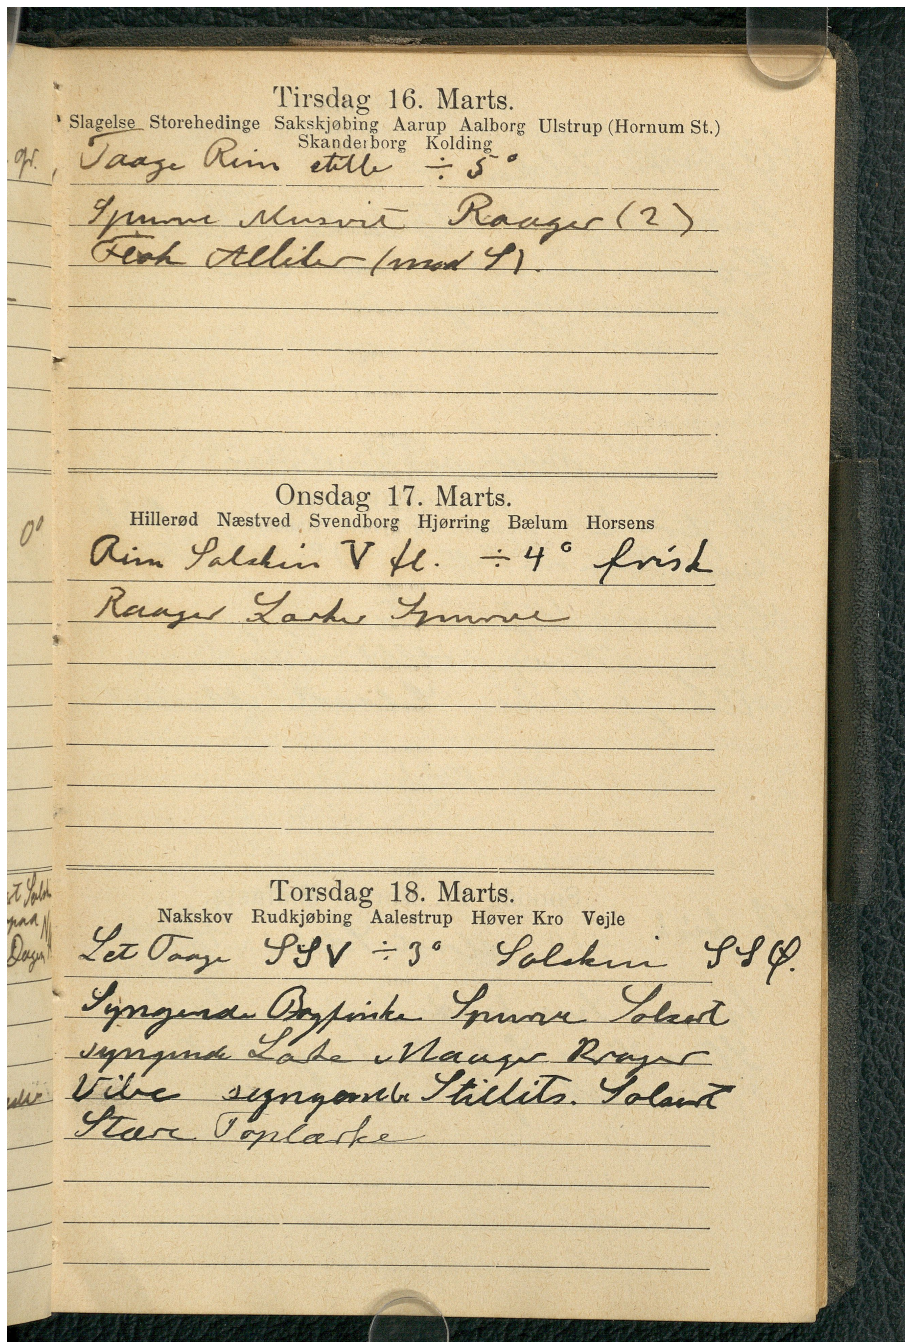 Tirsdag 16. Marts.
Slagelse Storehedinge Sakskjøbing Aarup Aalborg Ulstrup (Hornum St.)
Skanderborg Kolding
Taage Rim stille ÷ 5°
Spurve Musvit Raager (2)
Flok Alliker (mod S).
Onsdag 17. Marts.
Hillerød Næstved Svendborg Hjørring Bælum Horsens
0°
Rim Solskin V fl. ÷ 4° frisk
Raager Lærker Spurve
Torsdag 18. Marts.
Nakskov Rudkjøbing Aalestrup Høver Kro Vejle
Let Taage SSV ÷ 3° Solskin SSØ.
Syngende Bogfinke Spurve Solsort
syngende Lærke Maager Krager
Vibe syngende Stillits. Solsort
Stære Toplærke